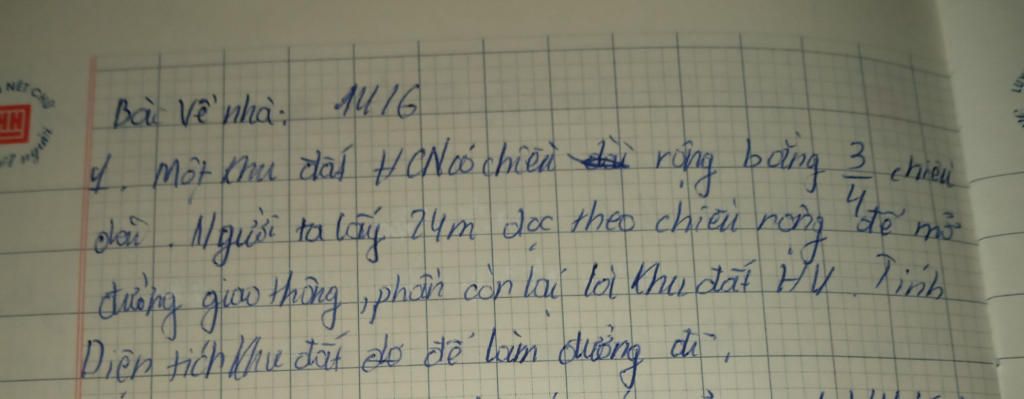 NÉT CHỮ
Bài về nhà: 14/6
1. Một khu đất HCN có chiều rộng bằng 3/4 chiều
dài. Người ta lấy 24m dọc theo chiều rộng để mở
đường giao thông, phần còn lại là khu đất HV. Tính
Diện tích khu đất đó để làm đường đi.